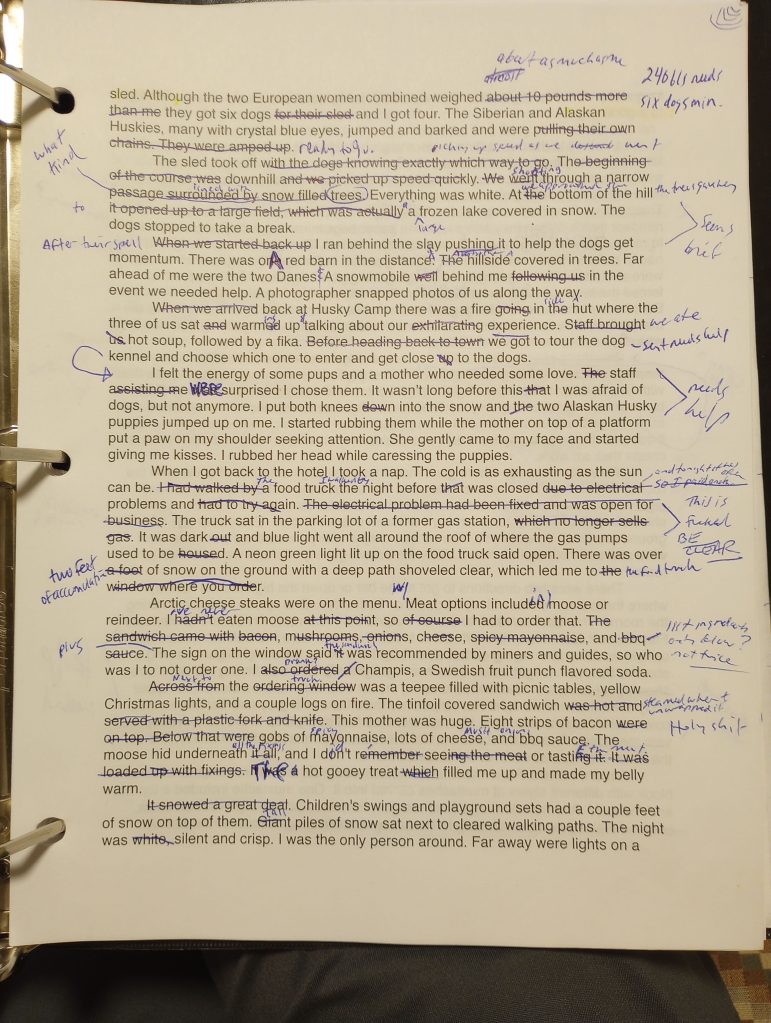 about as much as me
almost
240 lbs needs
six dogs min.
sled. Although the two European women combined weighed about 10 pounds more
than me they got six dogs for their sled and I got four. The Siberian and Alaskan
Huskies, many with crystal blue eyes, jumped and barked and were pulling their own
chains. They were amped up. ready to go. picking up speed as we went
what kind
The sled took off with the dogs knowing exactly which way to go. The beginning
of the course was downhill and we picked up speed quickly. We went through a narrow
shooting
passage surrounded by snow filled trees. Everything was white. At the bottom of the hill
lined with
we approached
it opened up to a large field, which was actually a frozen lake covered in snow. The
to
large
dogs stopped to take a break.
seems brief
After their spell
When we started back up I ran behind the slay pushing it to help the dogs get
momentum. There was one red barn in the distance. The hillside covered in trees. Far
A
ahead of me were the two Danes. A snowmobile well behind me following us in the
event we needed help. A photographer snapped photos of us along the way.
When we arrived back at Husky Camp there was a fire going in the hut where the
three of us sat and warmed up talking about our exhilarating experience. Staff brought we ate
us hot soup, followed by a fika. Before heading back to town we got to tour the dog
sent needs help
kennel and choose which one to enter and get close up to the dogs.
I felt the energy of some pups and a mother who needed some love. The staff
assisting me was surprised I chose them. It wasn't long before this that I was afraid of
were
dogs, but not anymore. I put both knees down into the snow and the two Alaskan Husky
needs help
puppies jumped up on me. I started rubbing them while the mother on top of a platform
put a paw on my shoulder seeking attention. She gently came to my face and started
giving me kisses. I rubbed her head while caressing the puppies.
When I got back to the hotel I took a nap. The cold is as exhausting as the sun
can be. I had walked by a food truck the night before that was closed due to electrical
The
I walked by
problems and had to try again. The electrical problem had been fixed and was open for
This is fucked
BE CLEAR
business. The truck sat in the parking lot of a former gas station, which no longer sells
gas. It was dark out and blue light went all around the roof of where the gas pumps
used to be housed. A neon green light lit up on the food truck said open. There was over
two feet of accumulation
a foot of snow on the ground with a deep path shoveled clear, which led me to the the food truck
window where you order.
w/
Arctic cheese steaks were on the menu. Meat options included moose or
reindeer. I hadn't eaten moose at this point, so of course I had to order that. The
I've never
sandwich came with bacon, mushrooms, onions, cheese, spicy mayonnaise, and bbq
list ingredients only once?
not twice
plus
sauce. The sign on the window said it was recommended by miners and guides, so who
the sandwich
was I to not order one. I also ordered a Champis, a Swedish fruit punch flavored soda.
drank?
Across from the ordering window was a teepee filled with picnic tables, yellow
Next to
truck
Christmas lights, and a couple logs on fire. The tinfoil covered sandwich was hot and
steamed when I unwrapped it
served with a plastic fork and knife. This mother was huge. Eight strips of bacon were
Holy shit!
on top. Below that were gobs of mayonnaise, lots of cheese, and bbq sauce. The
spicy
mush onions
moose hid underneath it all, and I don't remember seeing the meat or tasting it. It was
all the fixings
did
the meat.
loaded up with fixings. It was a hot gooey treat which filled me up and made my belly
THE
warm.
It snowed a great deal. Children's swings and playground sets had a couple feet
of snow on top of them. Giant piles of snow sat next to cleared walking paths. The night
tall
was white, silent and crisp. I was the only person around. Far away were lights on a